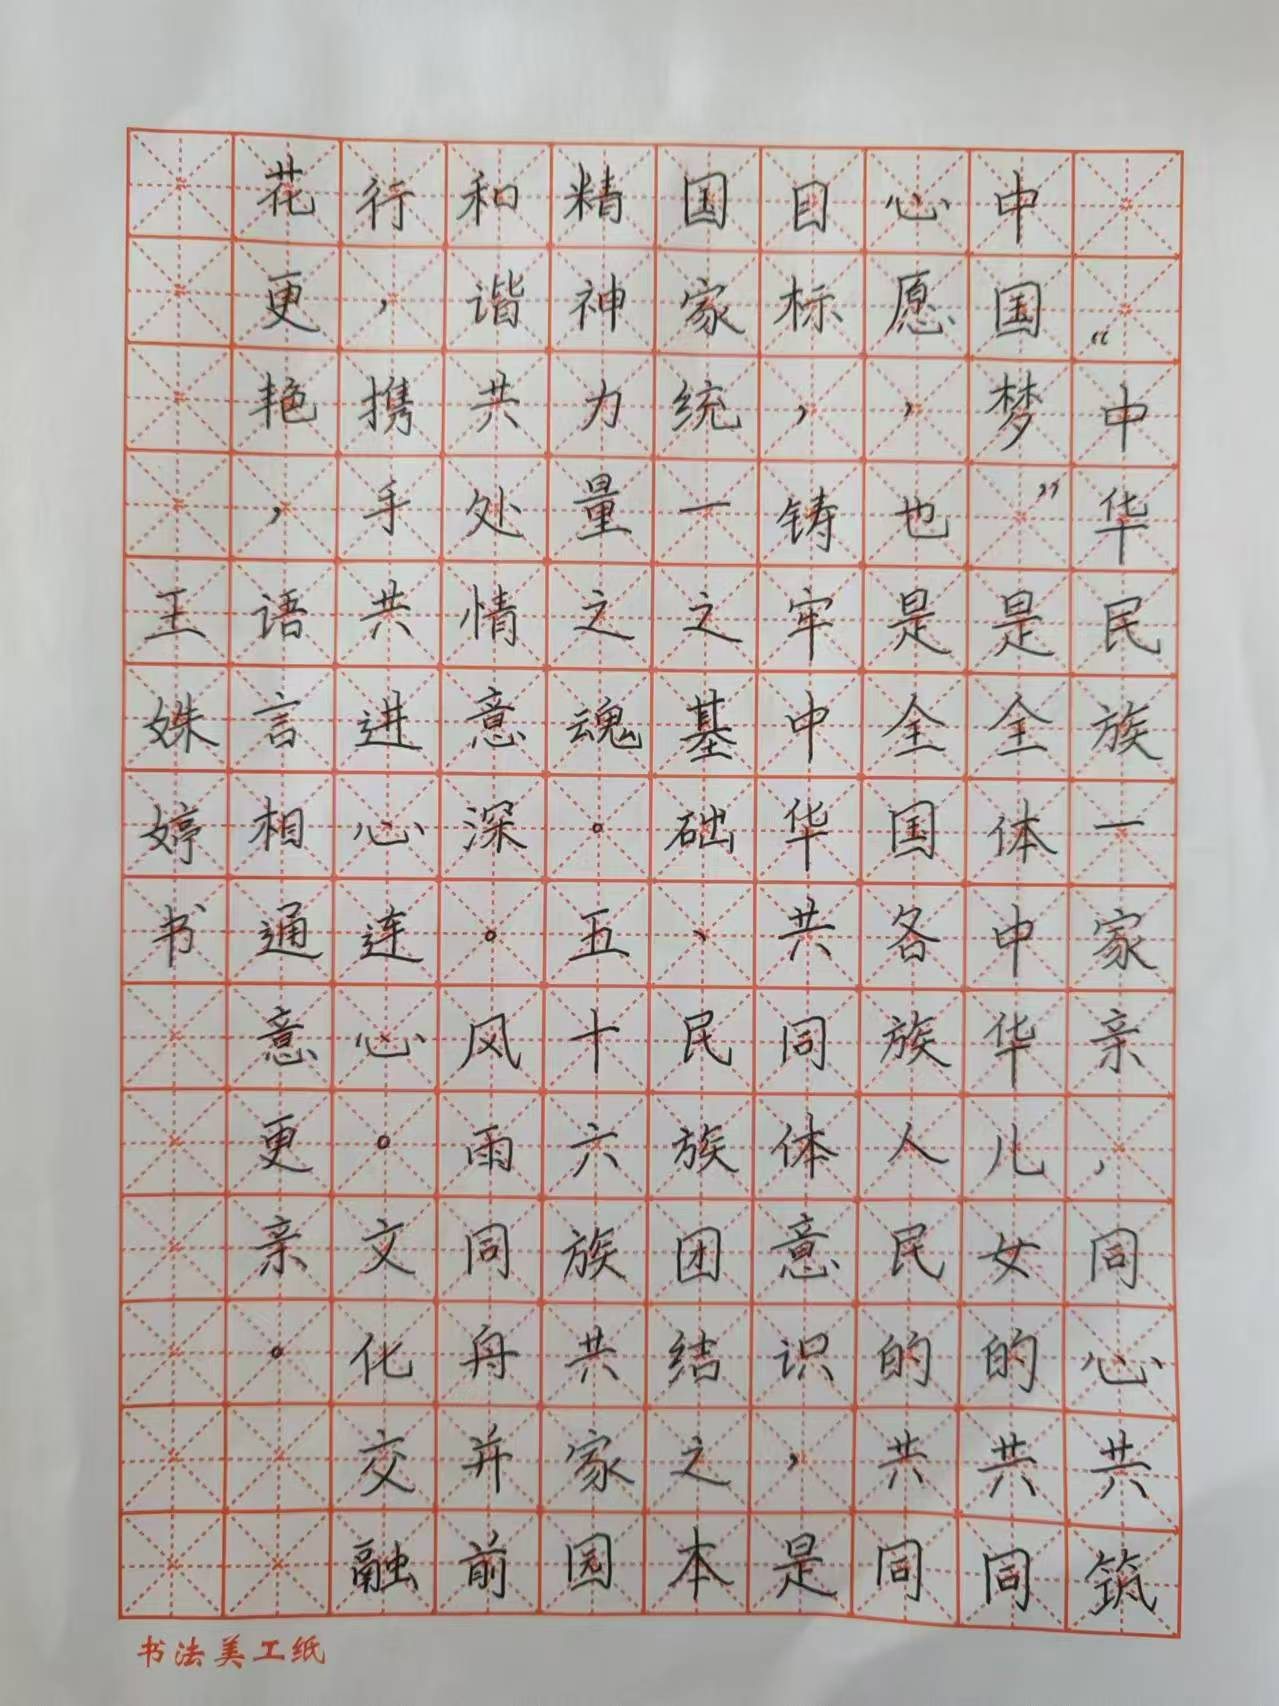 “中华民族一家亲，同心共筑
中国梦”是全体中华儿女的共同
心愿，也是全国各族人民的共同
目标，铸牢中华共同体意识，是
国家统一之基础、民族团结之本
精神力量之魂。五十六族共家园
和谐共处情意深。风雨同舟并前
行，携手共进心连心。文化交融
花更艳，语言相通意更亲。
王姝婷书
书法美工纸